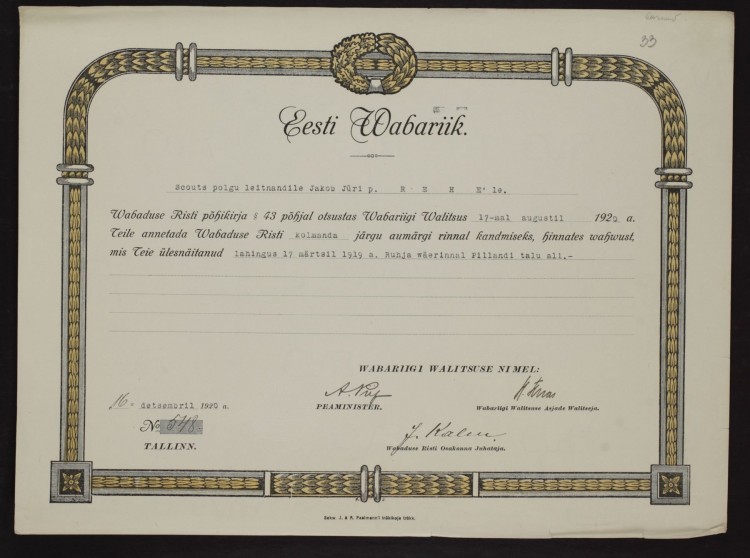 33
Eesti Wabariik.
Scouts polgu leitnandile Jakob Jüri p. R E H E' le.
Wabaduse Risti põhikirja § 43 põhjal otsustas Wabariigi Walitsus 17-mal augustil 1920 a.
Teile annetada Wabaduse Risti kolmanda järgu aumärgi rinnal kandmiseks, hinnates wahwust,
mis Teie ülesnäitanud lahingus 17 märtsil 1919 a. Ruhja wäerinnal Pillandi talu all.-
WABARIIGI WALITSUSE NIMEL:
16. detsembril 1920 a.
PEAMINISTER.
Wabariigi Walitsuse Asjade Walitseja.
№ 548.
TALLINN.
J. Kalm
Wabaduse Risti Osakonna Juhataja.